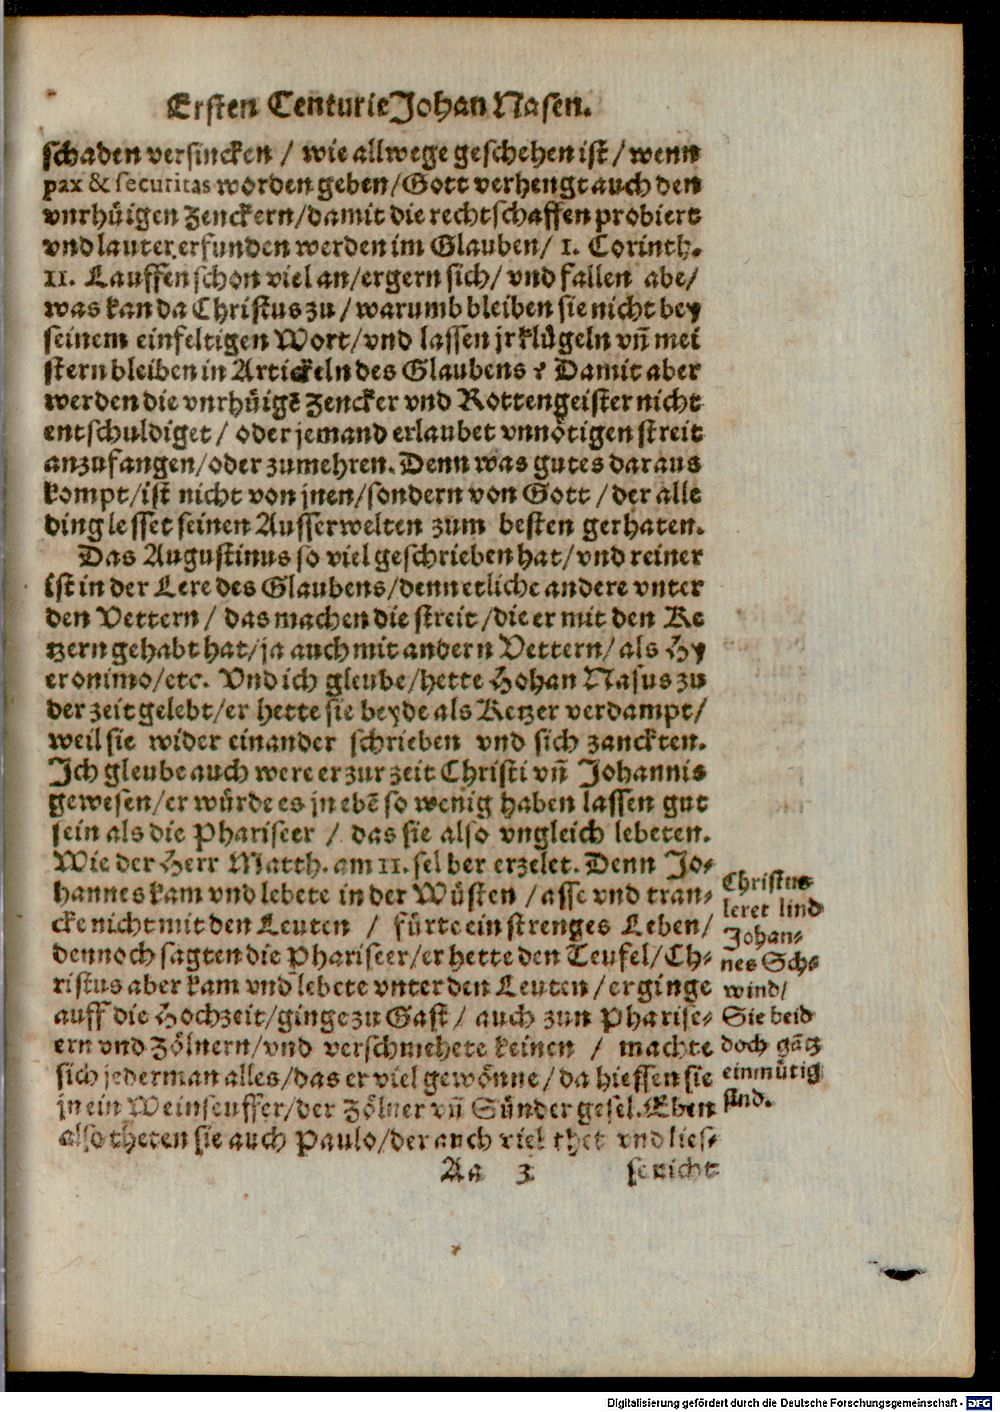 Ersten Centurie Johan Nasen.
schaden versincken / wie allwege geschehen ist / wenn
pax & securitas worden geben / Gott verhengt auch den
vnrhüigen Zenckern / damit die rechtschaffen probiert
vnd lauter erfunden werden im Glauben / 1. Corinth.
11. Lauffen schon viel an / ergern sich / vnd fallen abe /
was kan da Christus zu / warumb bleiben sie nicht bey
seinem einfeltigen Wort / vnd lassen jr klügeln vñ mei
stern bleiben in Artickeln des Glaubens? Damit aber
werden die vnrhüigē Zencker vnd Rottengeister nicht
entschuldiget / oder jemand erlaubet vnnötigen streit
anzufangen / oder zumehren. Denn was gutes daraus
kompt / ist nicht von jnen / sondern von Gott / der alle
ding lesset seinen Ausserwelten zum besten gerhaten.
Das Augustinus so viel geschrieben hat / vnd reiner
ist in der Lere des Glaubens / denn etliche andere vnter
den Vettern / das machen die streit / die er mit den Ke
tzern gehabt hat / ja auch mit andern Vettern / als Hy
eronimo / etc. Vnd ich gleube / hette Johan Nasus zu
der zeit gelebt / er hette sie beyde als Ketzer verdampt /
weil sie wider einander schrieben vnd sich zanckten.
Ich gleube auch were er zur zeit Christi vñ Johannis
gewesen / er würde es jn ebē so wenig haben lassen gut
sein als die Phariseer / das sie also vngleich lebeten.
Wie der Herr Matth. am 11. selber erzelet. Denn Jo-
hannes kam vnd lebete in der Wüsten / asse vnd tran-
cke nicht mit den Leuten / fürte ein strenges Leben /
dennoch sagten die Phariseer / er hette den Teufel / Ch-
ristus aber kam vnd lebete vnter den Leuten / er ginge
auff die Hochzeit / ginge zu Gast / auch zun Pharise-
ern vnd Zölnern / vnd verschmehete keinen / machte
sich jederman alles / das er viel gewönne / da hiessen sie
jn ein Weinseuffer / der Zölner vñ Sünder gesel. Eben
also theten sie auch Paulo / der auch viel thet vnd lies-
Christus
leret lind
Johan-
nes Sch-
wind /
Sie beid
doch gātz
einmütig
sind.
Aa 3 se nicht
Digitalisierung gefördert durch die Deutsche Forschungsgemeinschaft - DFG